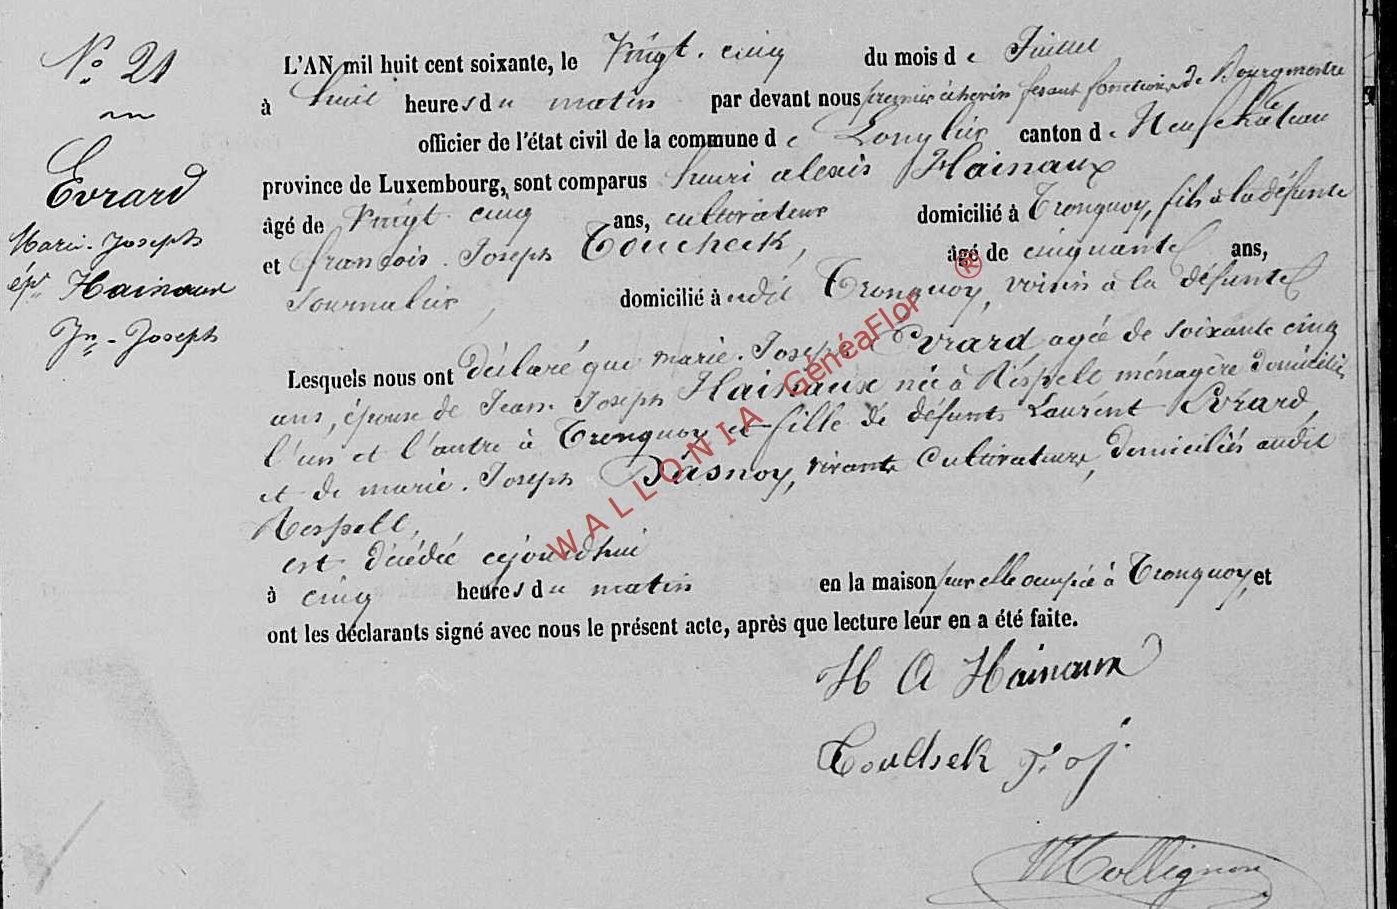 N° 21
Evrard
Marie-Joseph
ép. Hainaux
Jn-Joseph
L'AN mil huit cent soixante, le Vingt-cinq du mois de Juillet
à huit heures du matin par devant nous premier échevin fesant fonctions de Bourgmestre
officier de l'état civil de la commune de Longlier canton de Neufchâteau
province de Luxembourg, sont comparus henri alexis Hainaux
âgé de Vingt cinq ans, cultivateur domicilié à Tronquoy, fils à la défunte
et francois-Joseph âgé de cinquante ans,
Journalier, domicilié à udit Tronquoy, voisin à la défunte
Lesquels nous ont déclaré que marie-Joseph Evrard, agée de soixante cinq
ans, épouse de Jean-Joseph Hainaux née à Respelt ménagère domiciliés
l'un et l'autre à Tronquoy et fille de défunts Laurent Evrard,
et de marie-Joseph Dasnoy, vivants Cultivateurs, domiciliés audit
Respelt,
est décédée cejourdhui
à cinq heures du matin en la maison par elle occupée à Tronquoy, et
ont les déclarants signé avec nous le présent acte, après que lecture leur en a été faite.
H A Hainaux
F. J.
Collignon
WALLONIA GénéaFlor ®